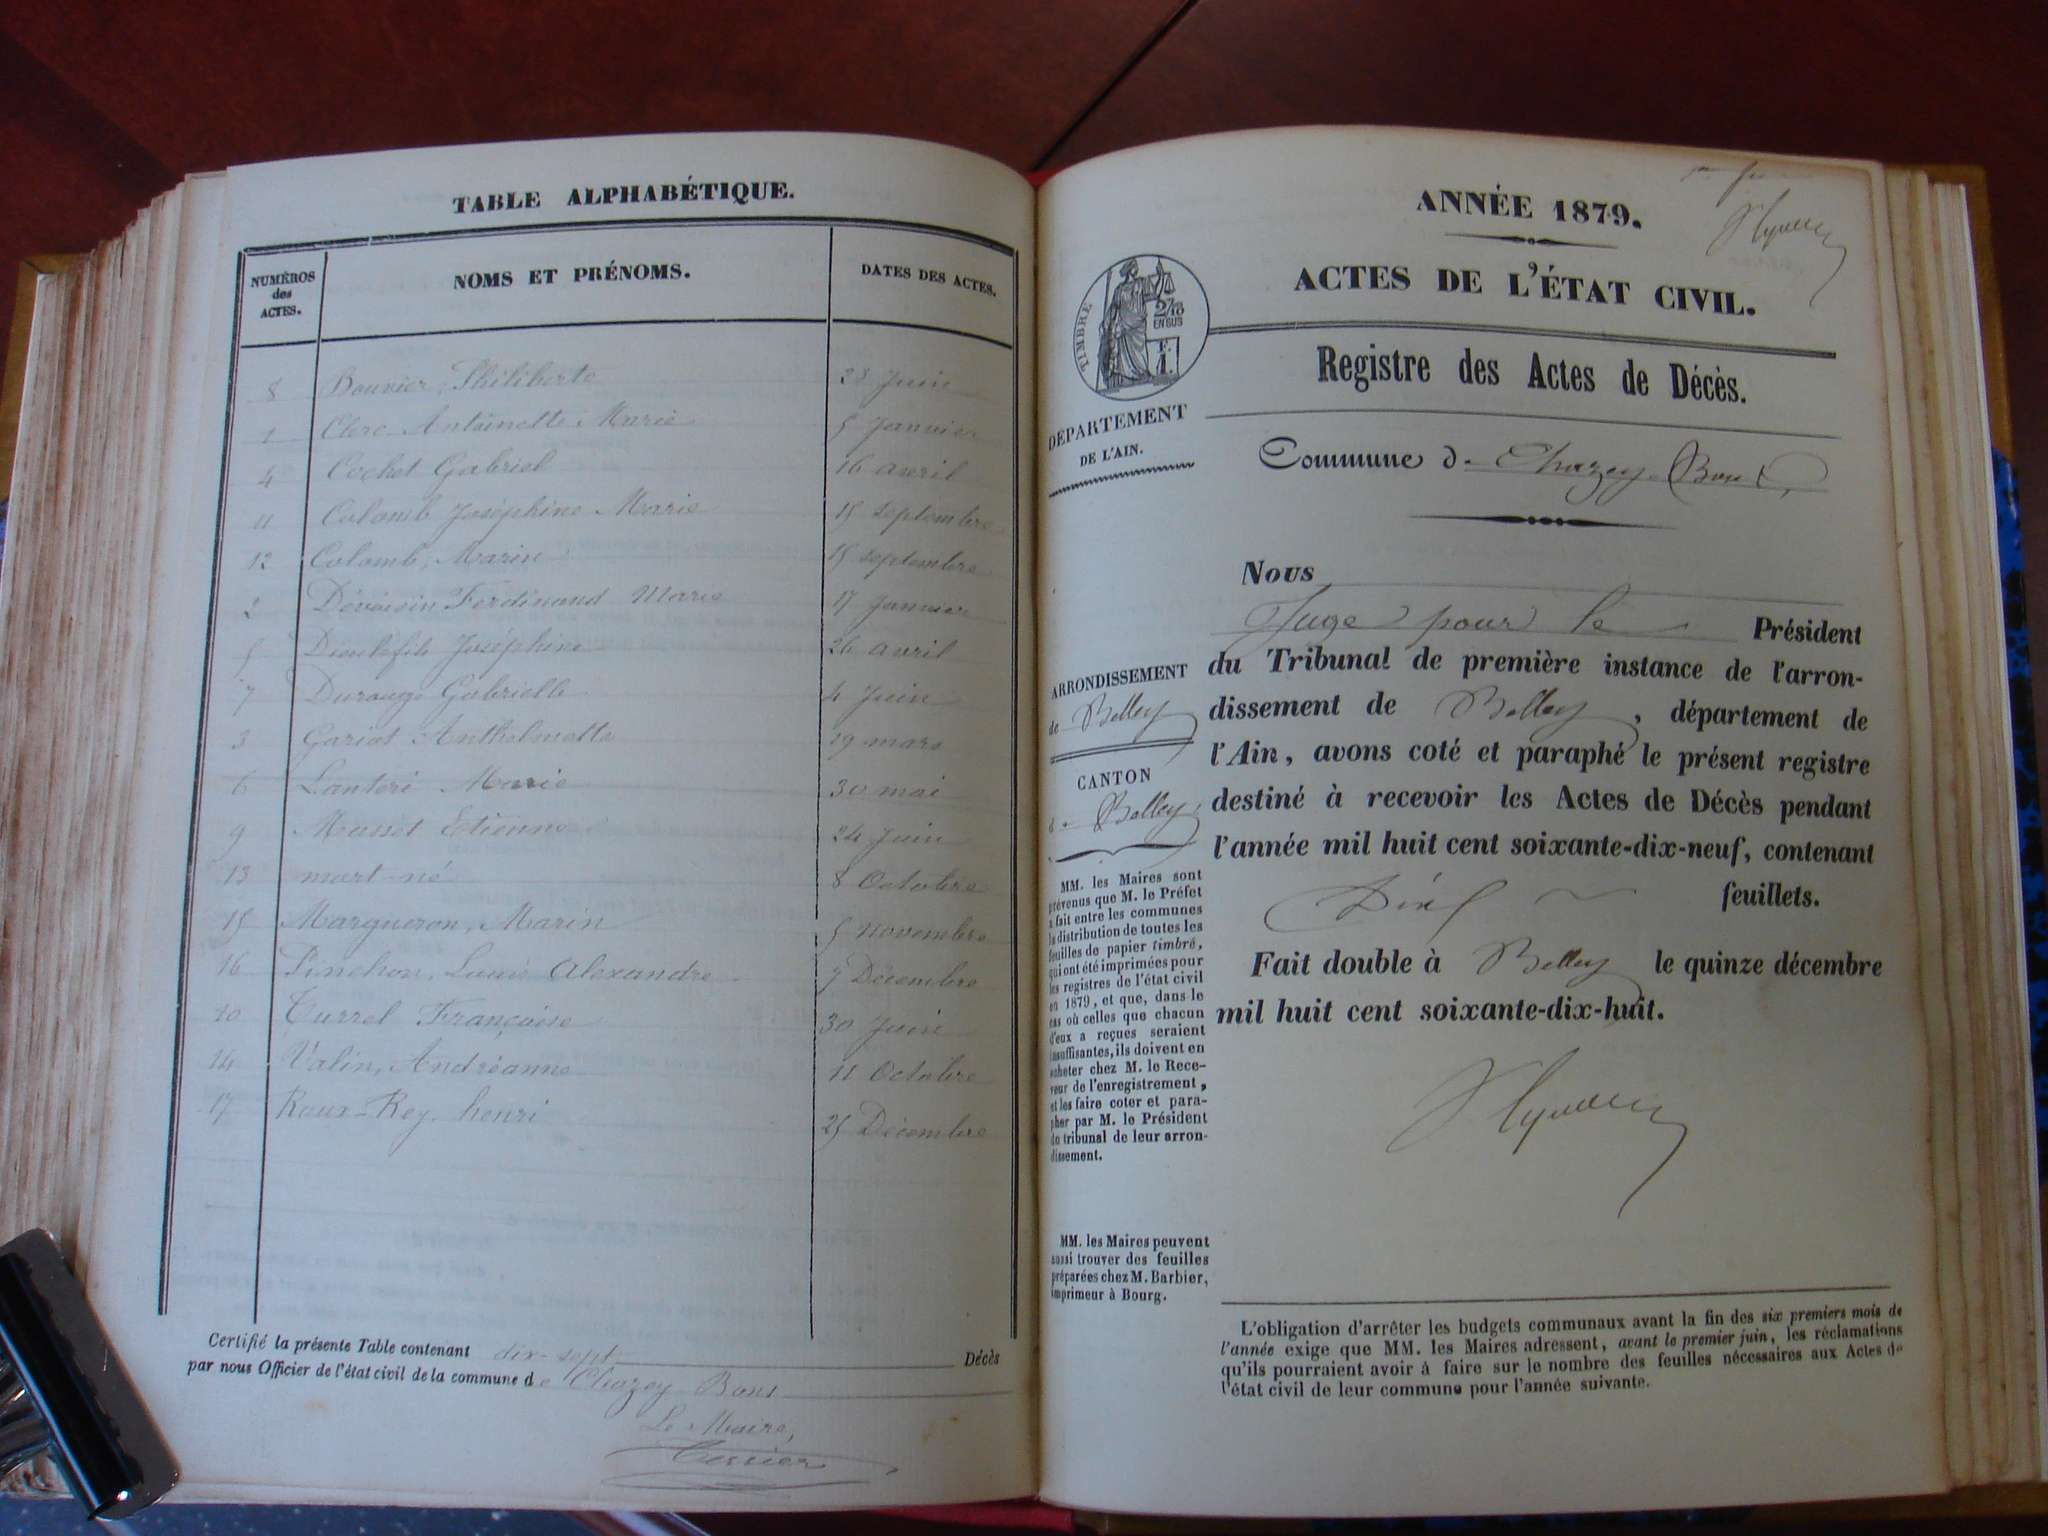 TABLE ALPHABÉTIQUE.
NUMÉROS des ACTES. NOMS ET PRÉNOMS. DATES DES ACTES.
8 Bouvier, Philiberte 23 Juin
1 Clerc Antoinette Marie 5 Janvier
4 Cochet Gabriel 16 avril
11 Colomb Joséphine Marie 15 septembre
12 Colomb, Marin 15 septembre
2 Ferdinand Marie 17 Janvier
5 Dieulefils Joséphine 26 avril
7 Gabrielle 4 Juin
3 Gariot Anthelmette 19 mars
6 Lanteri Marie 30 mai
9 Masset Etienne 24 Juin
13 mort-né 8 Octobre
15 Margueron, Marin 5 novembre
16 Pinchon, Louis Alexandre 7 Décembre
10 Turrel Françoise 30 Juin
14 Valin, Andréanne 11 Octobre
17 Roux-Rey, henri 25 Décembre
Certifié la présente Table contenant dix-sept Décès
par nous Officier de l'état civil de la commune de Chazey Bons
Le Maire,
ANNÉE 1879.
ACTES DE L'ÉTAT CIVIL.
TIMBRE
2/10
EN SUS
F.
1.
Registre des Actes de Décès.
DÉPARTEMENT
DE L'AIN.
Commune d Chazey-Bons
Nous
Juge pour le Président
du Tribunal de première instance de l'arron-
dissement de Belley, département de
l'Ain, avons coté et paraphé le présent registre
destiné à recevoir les Actes de Décès pendant
l'année mil huit cent soixante-dix-neuf, contenant
Dix feuillets.
Fait double à Belley le quinze décembre
mil huit cent soixante-dix-huit.
ARRONDISSEMENT
de Belley
CANTON
d Belley
MM. les Maires sont
prévenus que M. le Préfet
a fait entre les communes
la distribution de toutes les
feuilles de papier timbré,
qui ont été imprimées pour
les registres de l'état civil
en 1879, et que, dans le
cas où celles que chacun
d'eux a reçues seraient
insuffisantes, ils doivent en
acheter chez M. le Rece-
veur de l'enregistrement,
et les faire coter et para-
pher par M. le Président
du tribunal de leur arron-
dissement.
MM. les Maires peuvent
aussi trouver des feuilles
préparées chez M. Barbier,
imprimeur à Bourg.
L'obligation d'arrêter les budgets communaux avant la fin des six premiers mois de
l'année exige que MM. les Maires adressent, avant le premier juin, les réclamations
qu'ils pourraient avoir à faire sur le nombre des feuilles nécessaires aux Actes de
l'état civil de leur commune pour l'année suivante.